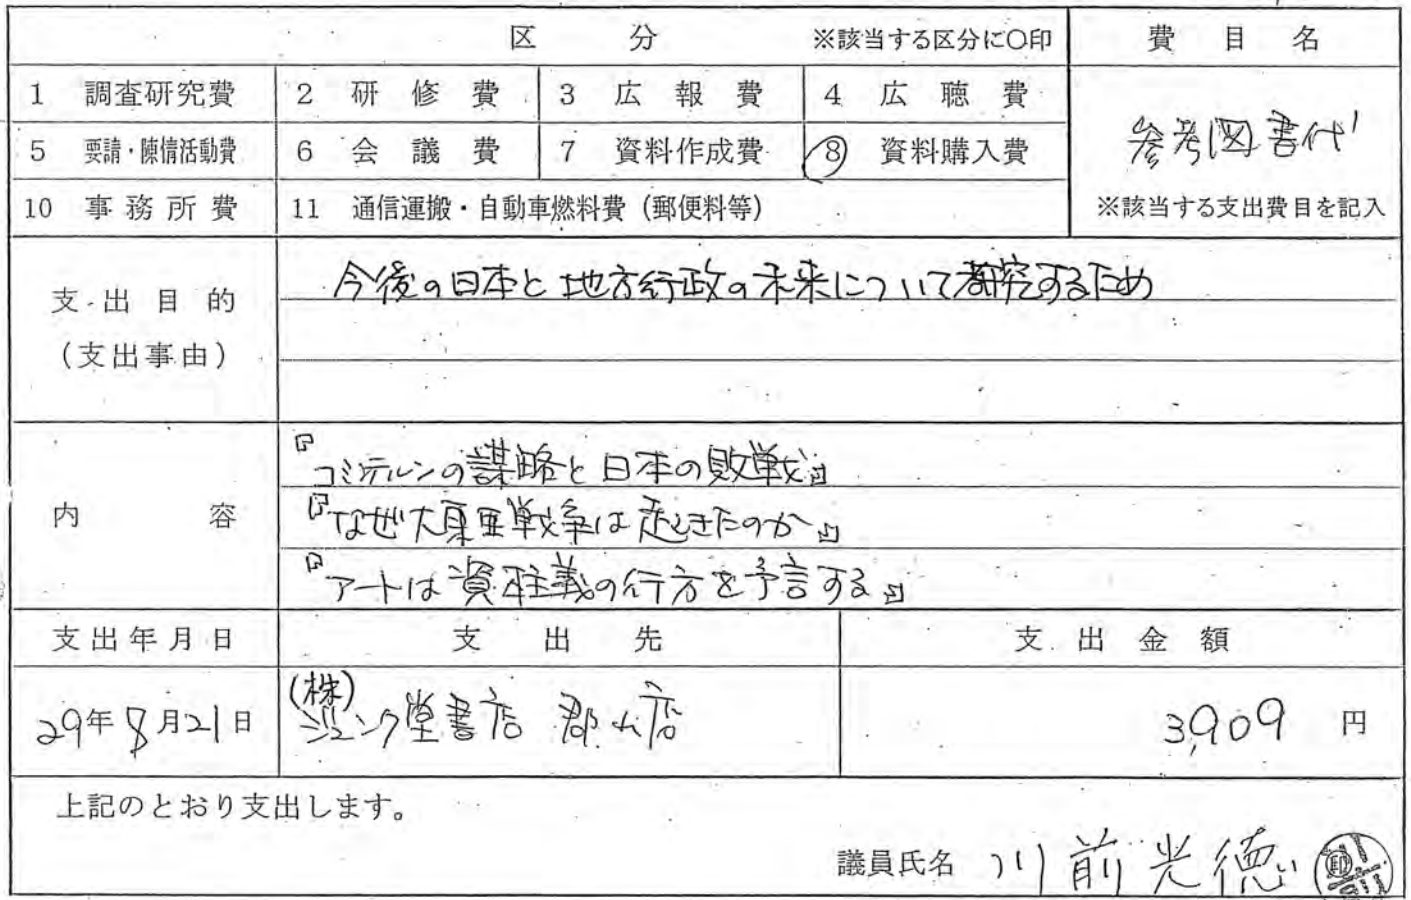 区 分 ※該当する区分に○印 費目名
1 調査研究費 2 研修費 3 広報費 4 広聴費
5 要請・陳情活動費 6 会議費 7 資料作成費 ⑧ 資料購入費
参考図書代
10 事務所費 11 通信運搬・自動車燃料費（郵便料等） ※該当する支出費目を記入
支出目的
（支出事由）
今後の日本と地方行政の未来について研究するため
内容
『コミンテルンの謀略と日本の敗戦』
『なぜ大東亜戦争は起きたのか』
『アートは資本主義の行方を予言する』
支出年月日 支出先 支出金額
29年8月21日 (株)ジュンク堂書店 郡山店 3,909 円
上記のとおり支出します。
議員氏名 川前光徳 印